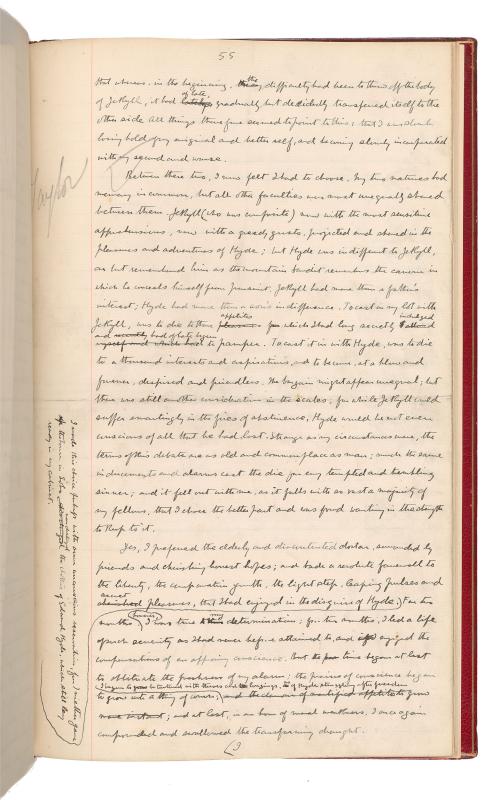 55
that whereas, in the beginning, the difficulty had been to throw off the body
of Jekyll, it had of late gradually but decidedly transferred itself to the
other side. All things therefore seemed to point to this: that I was slowly
losing hold of my original and better self, and becoming slowly incorporated
with my second and worse.
Between these two, I now felt I had to choose. My two natures had
memory in common, but all other faculties were most unequally shared
between them. Jekyll (who was composite) now with the most sensitive
apprehensions, now with a greedy gusto, projected and shared in the
pleasures and adventures of Hyde; but Hyde was indifferent to Jekyll,
or but remembered him as the mountain bandit remembers the cavern in
which he conceals himself from pursuit. Jekyll had more than a father's
interest; Hyde had more than a son's indifference. To cast in my lot with
Jekyll, was to die to those appetites which I had long secretly indulged
and had of late begun to pamper. To cast it in with Hyde, was to die
to a thousand interests and aspirations, and to become, at a blow and
forever, despised and friendless. The bargain might appear unequal; but
there was still another consideration in the scales; for while Jekyll would
suffer smartingly in the fires of abstinence, Hyde would be not even
conscious of all that he had lost. Strange as my circumstances were, the
terms of this debate are as old and commonplace as man; much the same
inducements and alarms cast the die for any tempted and trembling
sinner; and it fell out with me, as it falls with so vast a majority of
my fellows, that I chose the better part and was found wanting in the strength
to keep to it.
Yes, I preferred the elderly and discontented doctor, surrounded by
friends and cherishing honest hopes; and bade a resolute farewell to
the liberty, the comparative youth, the light step, leaping pulses and
secret pleasures, that I had enjoyed in the disguise of Hyde. For two
months, however, I was true to my determination; for two months, I led a life
of such severity as I had never before attained to, and enjoyed the
compensations of an approving conscience. But time began at last
to obliterate the freshness of my alarm; the praises of conscience began
to grow into a thing of course; I began to be tortured with throes and longings, as of Hyde struggling after freedom
and at last, in an hour of moral weakness, I once again
compounded and swallowed the transforming draught.
Taylor
I made this choice perhaps with some unconscious reservation, for I neither gave
up the house in Soho, nor destroyed the clothes of Edward Hyde, which still lay
ready in my cabinet.